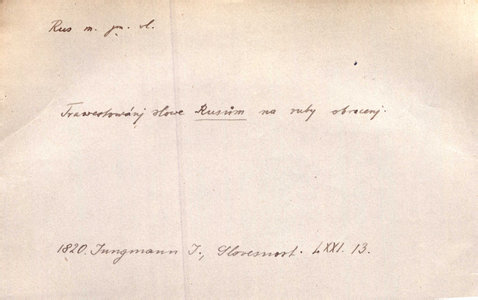 Rus m. jm. vl.
Trawestowánj slowe Rusům na ruby obracenj.
1820. Jungmann J., Slovesnost. LXXI. 13.